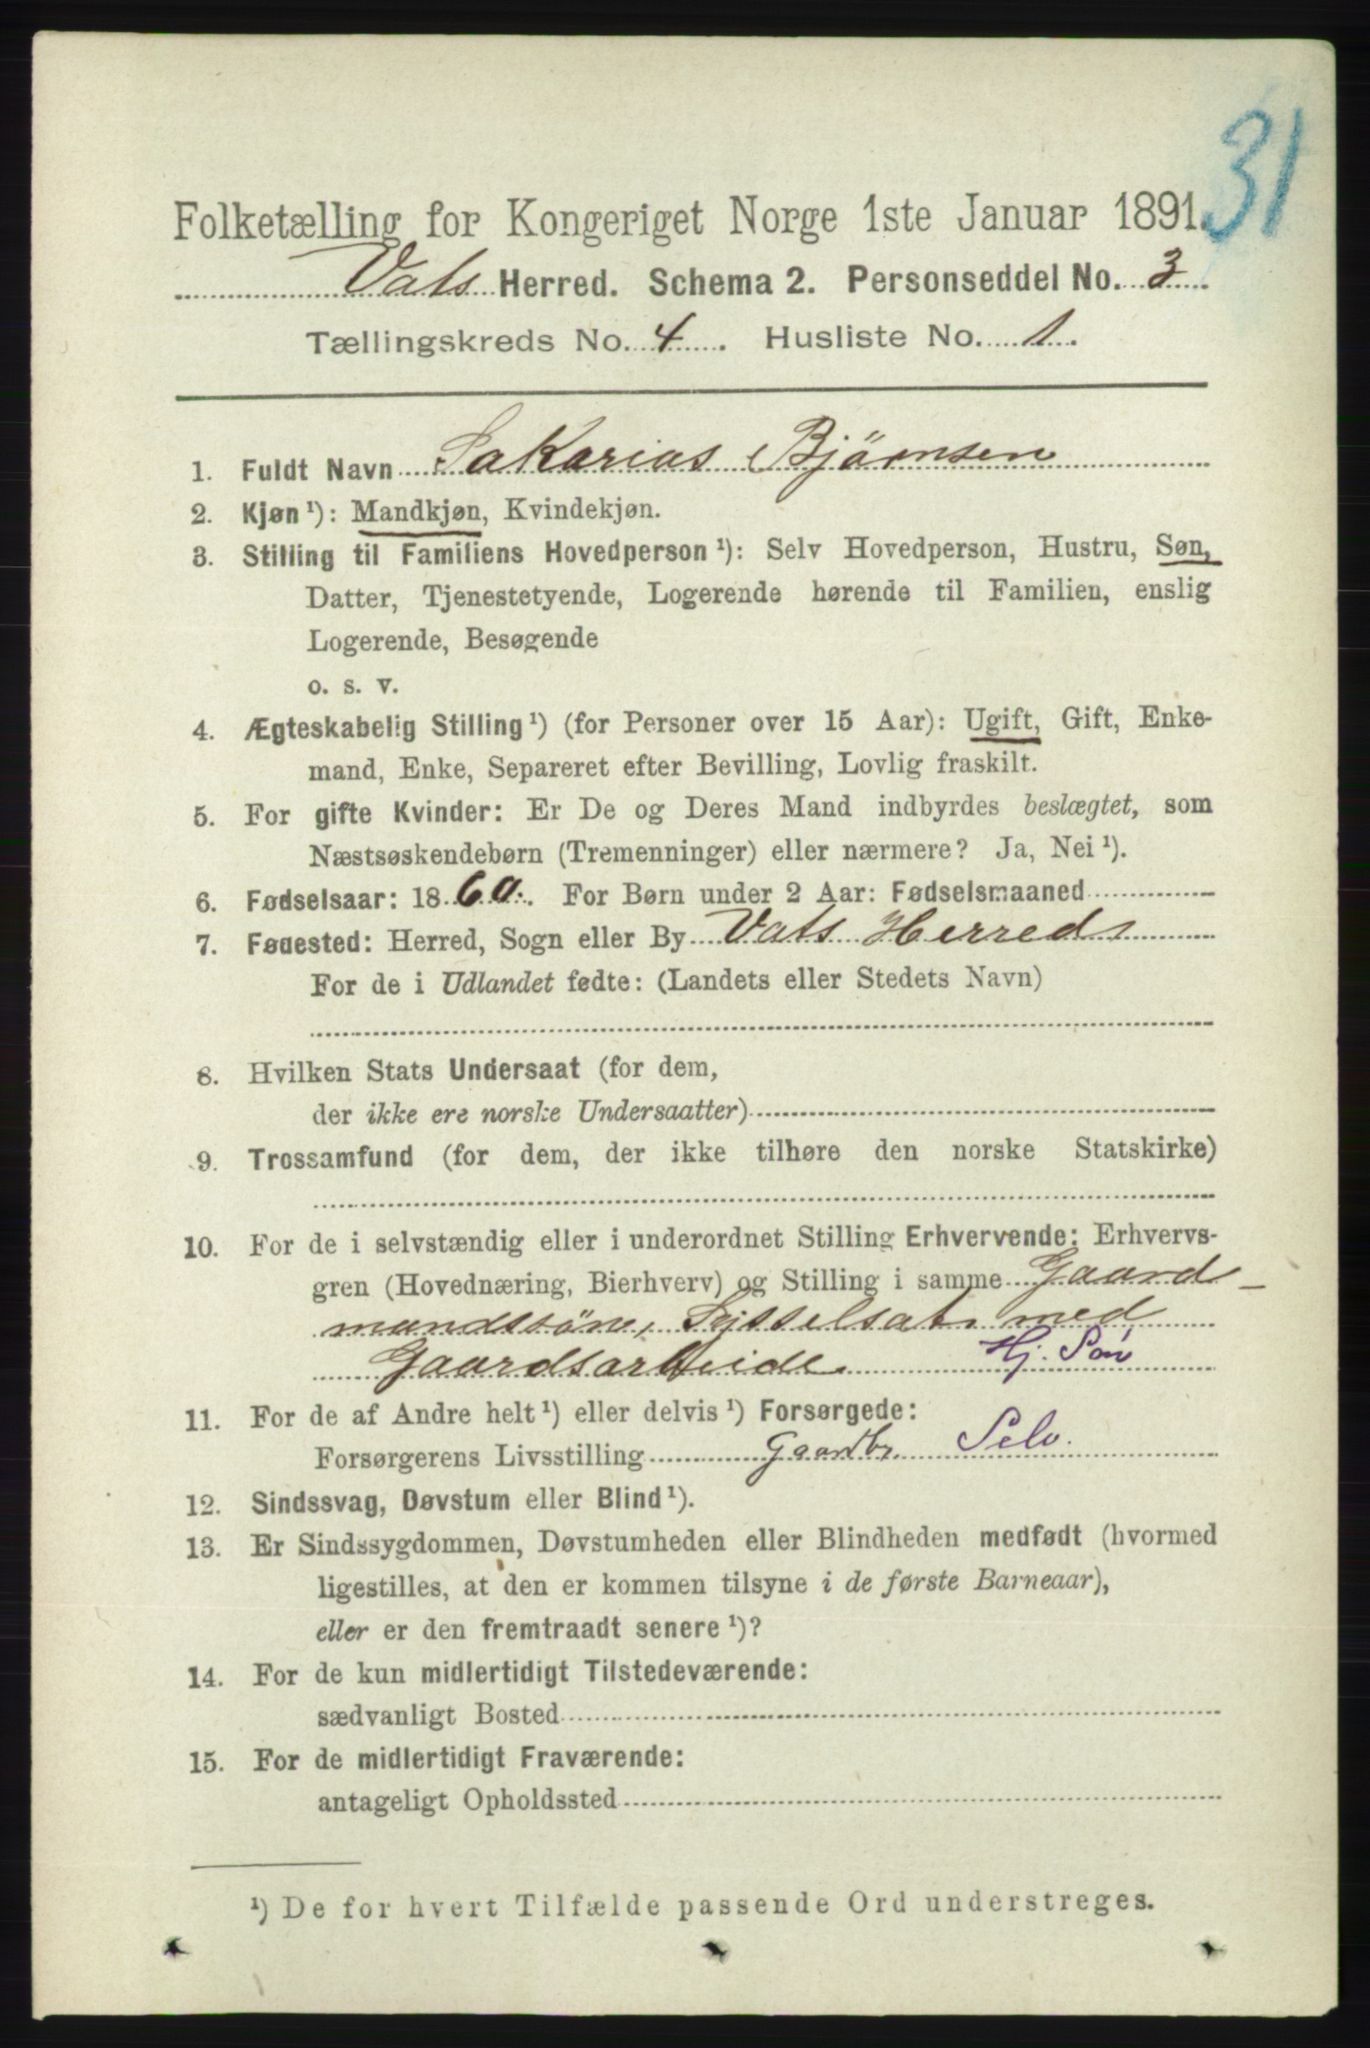 31
Folketælling for Kongeriget Norge 1ste Januar 1891.
Vats Herred. Schema 2. Personseddel No. 3.
Tællingskreds No. 4. Husliste No. 1.
1. Fuldt Navn Sakarias Björnsen
2. Kjøn ¹): Mandkjøn, Kvindekjøn.
3. Stilling til Familiens Hovedperson ¹): Selv Hovedperson, Hustru, Søn,
Datter, Tjenestetyende, Logerende hørende til Familien, enslig
Logerende, Besøgende
o. s. v.
4. Ægteskabelig Stilling ¹) (for Personer over 15 Aar): Ugift, Gift, Enke-
mand, Enke, Separeret efter Bevilling, Lovlig fraskilt.
5. For gifte Kvinder: Er De og Deres Mand indbyrdes beslægtet, som
Næstsøskendebørn (Tremenninger) eller nærmere? Ja, Nei ¹).
6. Fødselsaar: 1860. For Børn under 2 Aar: Fødselsmaaned
7. Fødested: Herred, Sogn eller By Vats Herred
For de i Udlandet fødte: (Landets eller Stedets Navn)
8. Hvilken Stats Undersaat (for dem,
der ikke ere norske Undersaatter)
9. Trossamfund (for dem, der ikke tilhøre den norske Statskirke)
10. For de i selvstændig eller i underordnet Stilling Erhvervende: Erhvervs-
gren (Hovednæring, Bierhverv) og Stilling i samme Gaard-
mandssön, Sysselsat med
Gaardsarbeide. Hj. Søn
11. For de af Andre helt ¹) eller delvis ¹) Forsørgede:
Forsørgerens Livsstilling Gaardbr. Selv.
12. Sindssvag, Døvstum eller Blind ¹).
13. Er Sindssygdommen, Døvstumheden eller Blindheden medfødt (hvormed
ligestilles, at den er kommen tilsyne i de første Barneaar),
eller er den fremtraadt senere ¹)?
14. For de kun midlertidigt Tilstedeværende:
sædvanligt Bosted
15. For de midlertidigt Fraværende:
antageligt Opholdssted
¹) De for hvert Tilfælde passende Ord understreges.